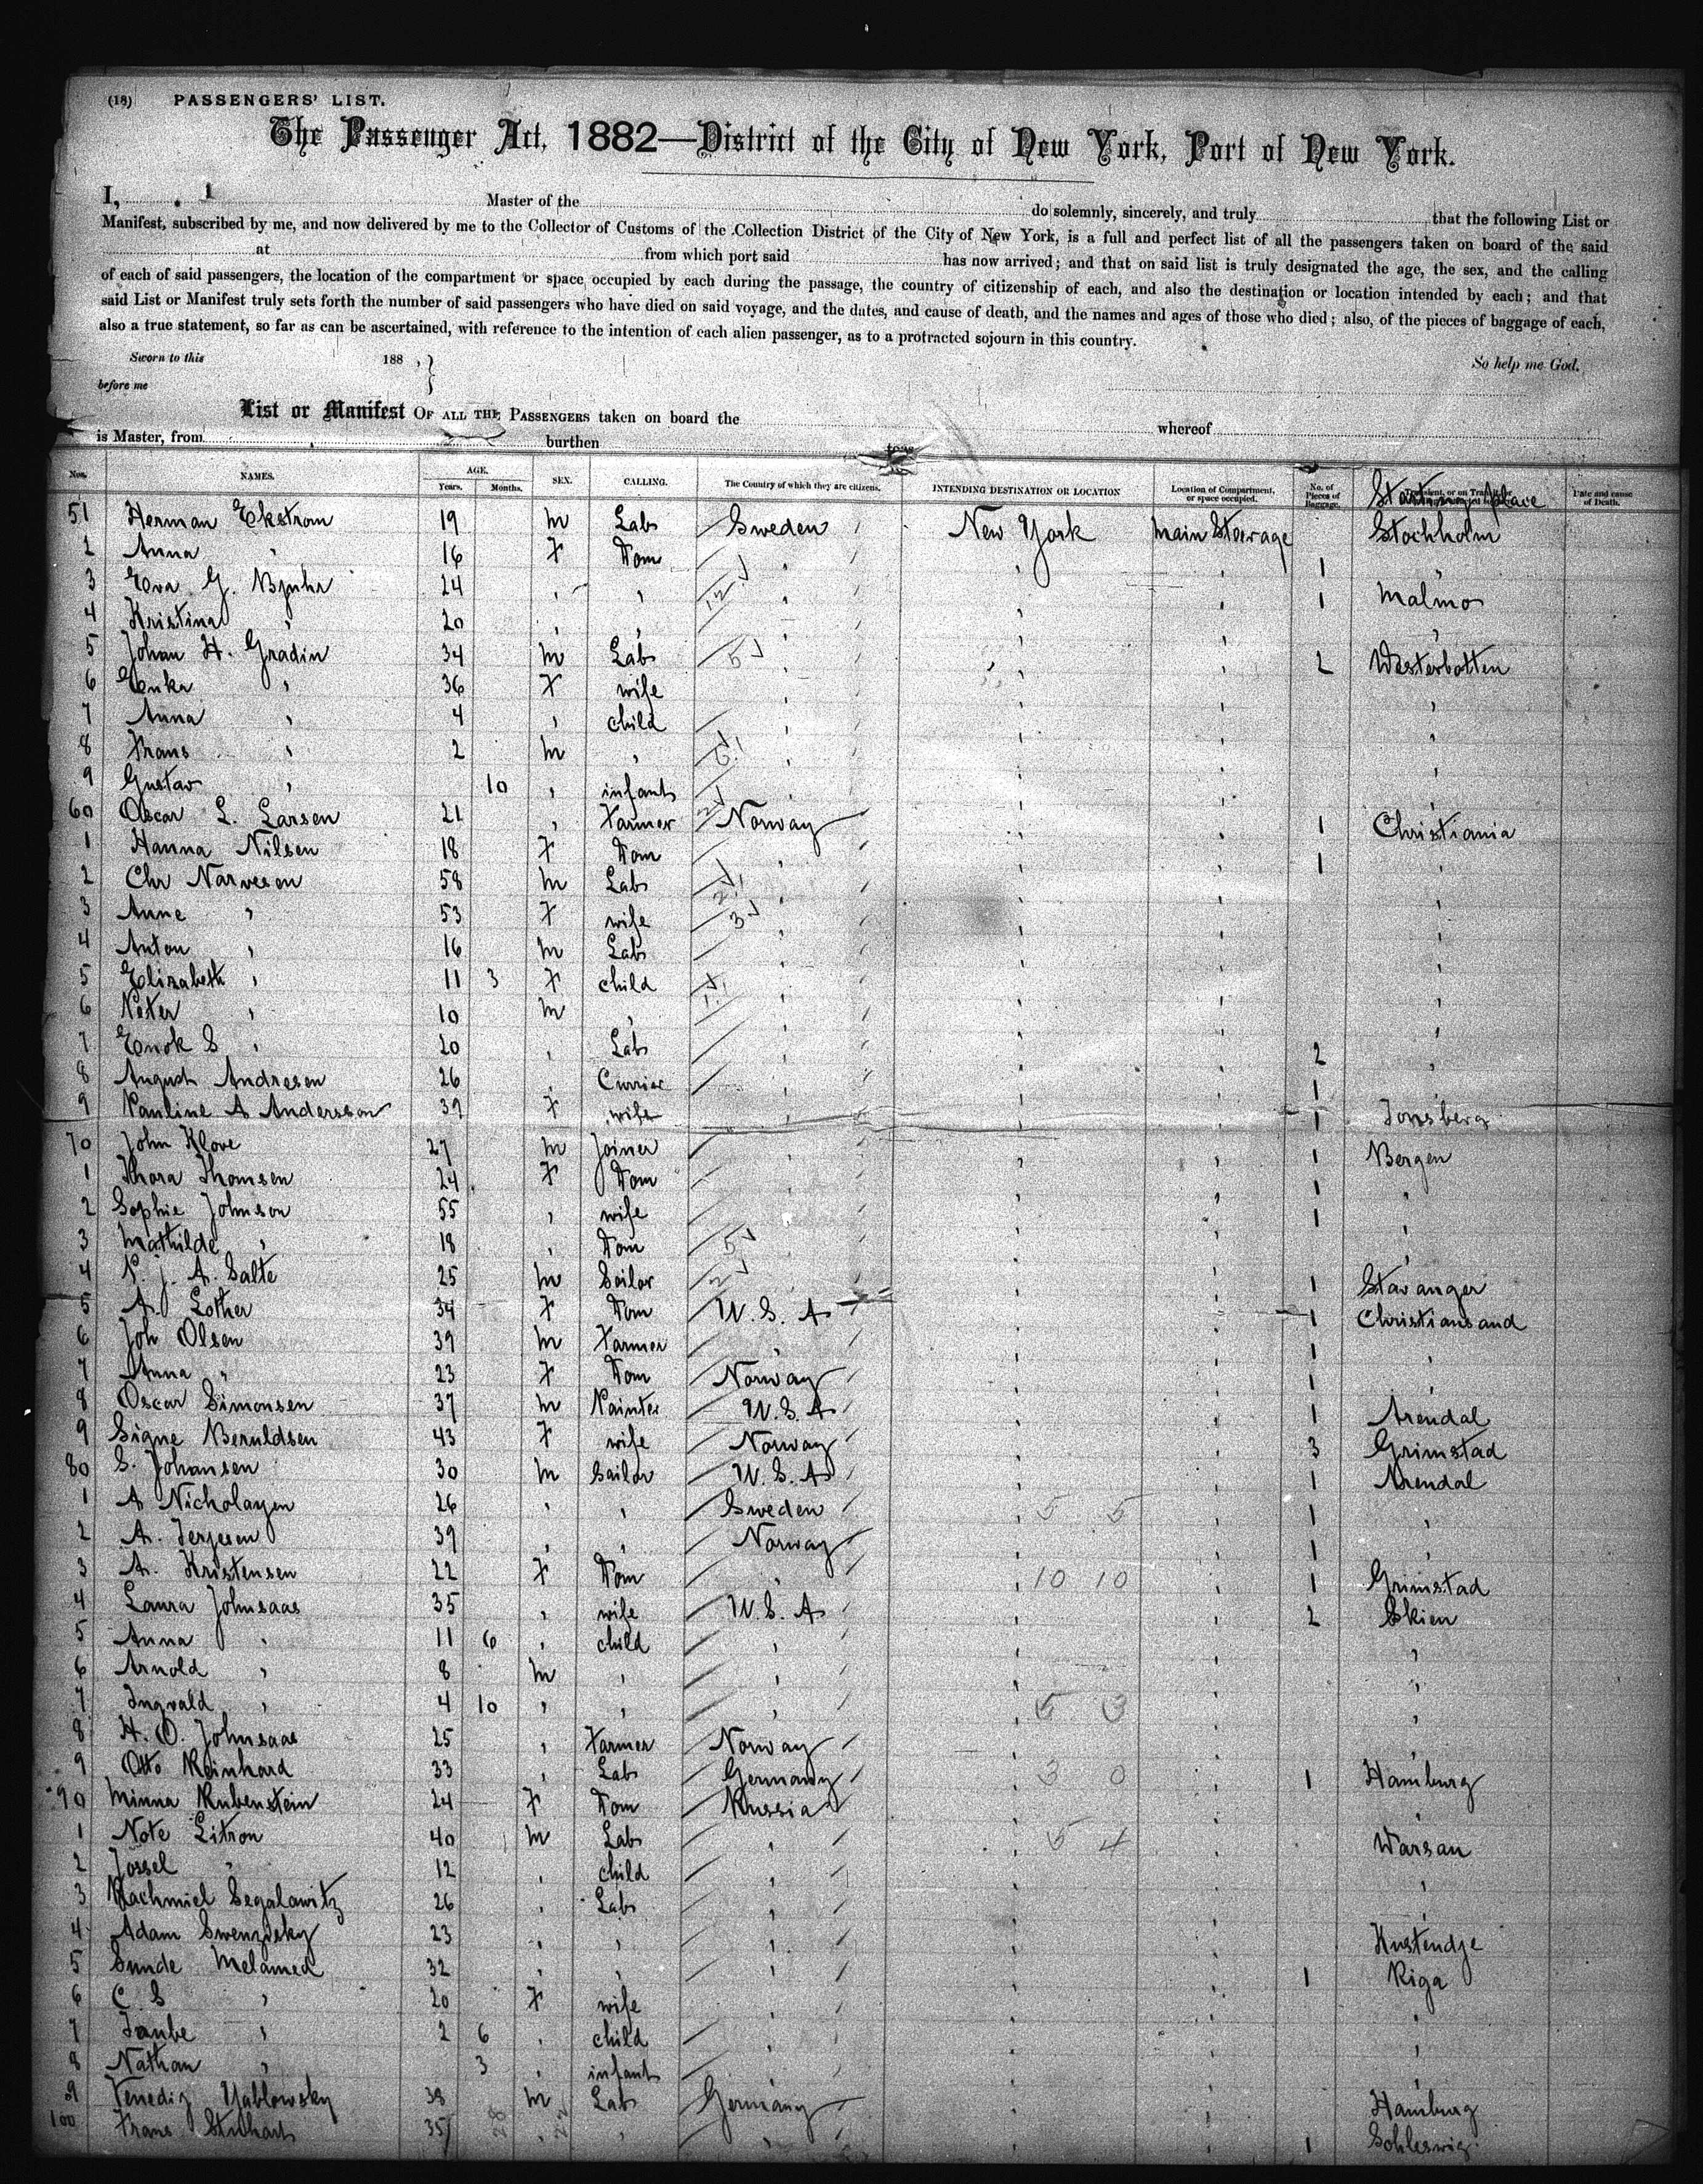 (18) PASSENGERS' LIST.
The Passenger Act, 1882—District of the City of New York, Port of New York.
I, Master of the do solemnly, sincerely, and truly that the following List or
Manifest, subscribed by me, and now delivered by me to the Collector of Customs of the Collection District of the City of New York, is a full and perfect list of all the passengers taken on board of the said
at from which port said has now arrived; and that on said list is truly designated the age, the sex, and the calling
of each of said passengers, the location of the compartment or space occupied by each during the passage, the country of citizenship of each, and also the destination or location intended by each; and that
said List or Manifest truly sets forth the number of said passengers who have died on said voyage, and the dates, and cause of death, and the names and ages of those who died; also, of the pieces of baggage of each,
also a true statement, so far as can be ascertained, with reference to the intention of each alien passenger, as to a protracted sojourn in this country.
Sworn to this 188 , } So help me God.
before me
List or Manifest OF ALL THE PASSENGERS taken on board the whereof
is Master, from burthen tons
Nos. NAMES. AGE. Years. Months. SEX. CALLING. The Country of which they are citizens. INTENDING DESTINATION OR LOCATION Location of Compartment, or space occupied. No. of Pieces of Baggage. Starting place Date and cause of Death.
51 Herman Ekstrom 19 m Lab Sweden New York Main Steerage Stockholm
2 Anna " 16 F Dom " " " 1 "
3 Eva G. Bjuhr 24 " " " " " 1 Malmo
4 Kristina " 20 " " " " " "
5 Johan H. Gradin 34 m Lab " " " 2 Westerbotten
6 " 36 F wife " " " "
7 Anna " 4 " child " " " "
8 Frans " 2 m " " " " "
9 Gustav " 10 " infant " " " "
60 Oscar L. Larsen 21 " Farmer Norway " " 1 Christiania
1 Hanna Nilsen 18 F Dom " " " 1 "
2 Chr Narvesen 58 m Lab " " " "
3 Anne " 53 F wife " " " "
4 Anton " 16 m Lab " " " "
5 Elizabeth " 11 3 F child " " " "
6 Peter " 10 m " " " " "
7 Enok S " 20 " Lab " " " 2 "
8 August Andresen 26 " Currier " " " 1 "
9 Pauline A Andersson 39 F wife " " " 1 Tonsberg
70 John Klove 27 m Joiner " " " 1 Bergen
1 Thora Thomsen 24 F Dom " " " 1 "
2 Sophie Johnson 55 " wife " " " 1 "
3 Mathilde " 18 " Dom " " " "
4 P. J. A. Salte 25 m Sailor " " " 1 Stavanger
5 A. Lother 34 F Dom U. S. A " " 1 Christiansand
6 Joh Olsen 39 m Farmer " " " 1 "
7 Anna " 23 F Dom Norway " " 1 "
8 Oscar Simonsen 37 m Painter U. S. A " " 1 Arendal
9 Signe Beruldsen 43 F wife Norway " " 3 Grimstad
80 S. Johansen 30 m Sailor U. S. A " " 1 Arendal
1 A Nicholaysen 26 " " Sweden " 5 5 " 1 "
2 A. Terjesen 39 " " Norway " " 1 "
3 A. Kristensen 22 F Dom " " 10 10 " 1 Grimstad
4 Laura Johnsaas 35 " wife U. S. A " " 2 Skien
5 Anna " 11 6 " child " " " "
6 Arnold " 8 m " " " " "
7 Ingvald " 4 10 " " " " 5 3 " "
8 H. O. Johnsaas 25 " Farmer Norway " " "
9 Otto Reinhard 33 " Lab Germany " 3 0 " 1 Hamburg
90 Minna Rubenstein 24 F Dom Russia " " "
1 Note Litron 40 m Lab " " 5 4 " Warsau
2 Jossel " 12 " child " " " "
3 Rachmiel Segalawitz 26 " Lab " " " "
4 Adam 23 " " " " " Kustendje
5 Melamed 32 " " " " " 1 Riga
6 C S " 20 F wife " " " "
7 Taube " 2 6 " child " " " "
8 Nathan " 3 " infant " " " "
9 Yablowsky 38 m Lab Germany " " Hamburg
100 Frans 35 " " " " " 1 Schleswig